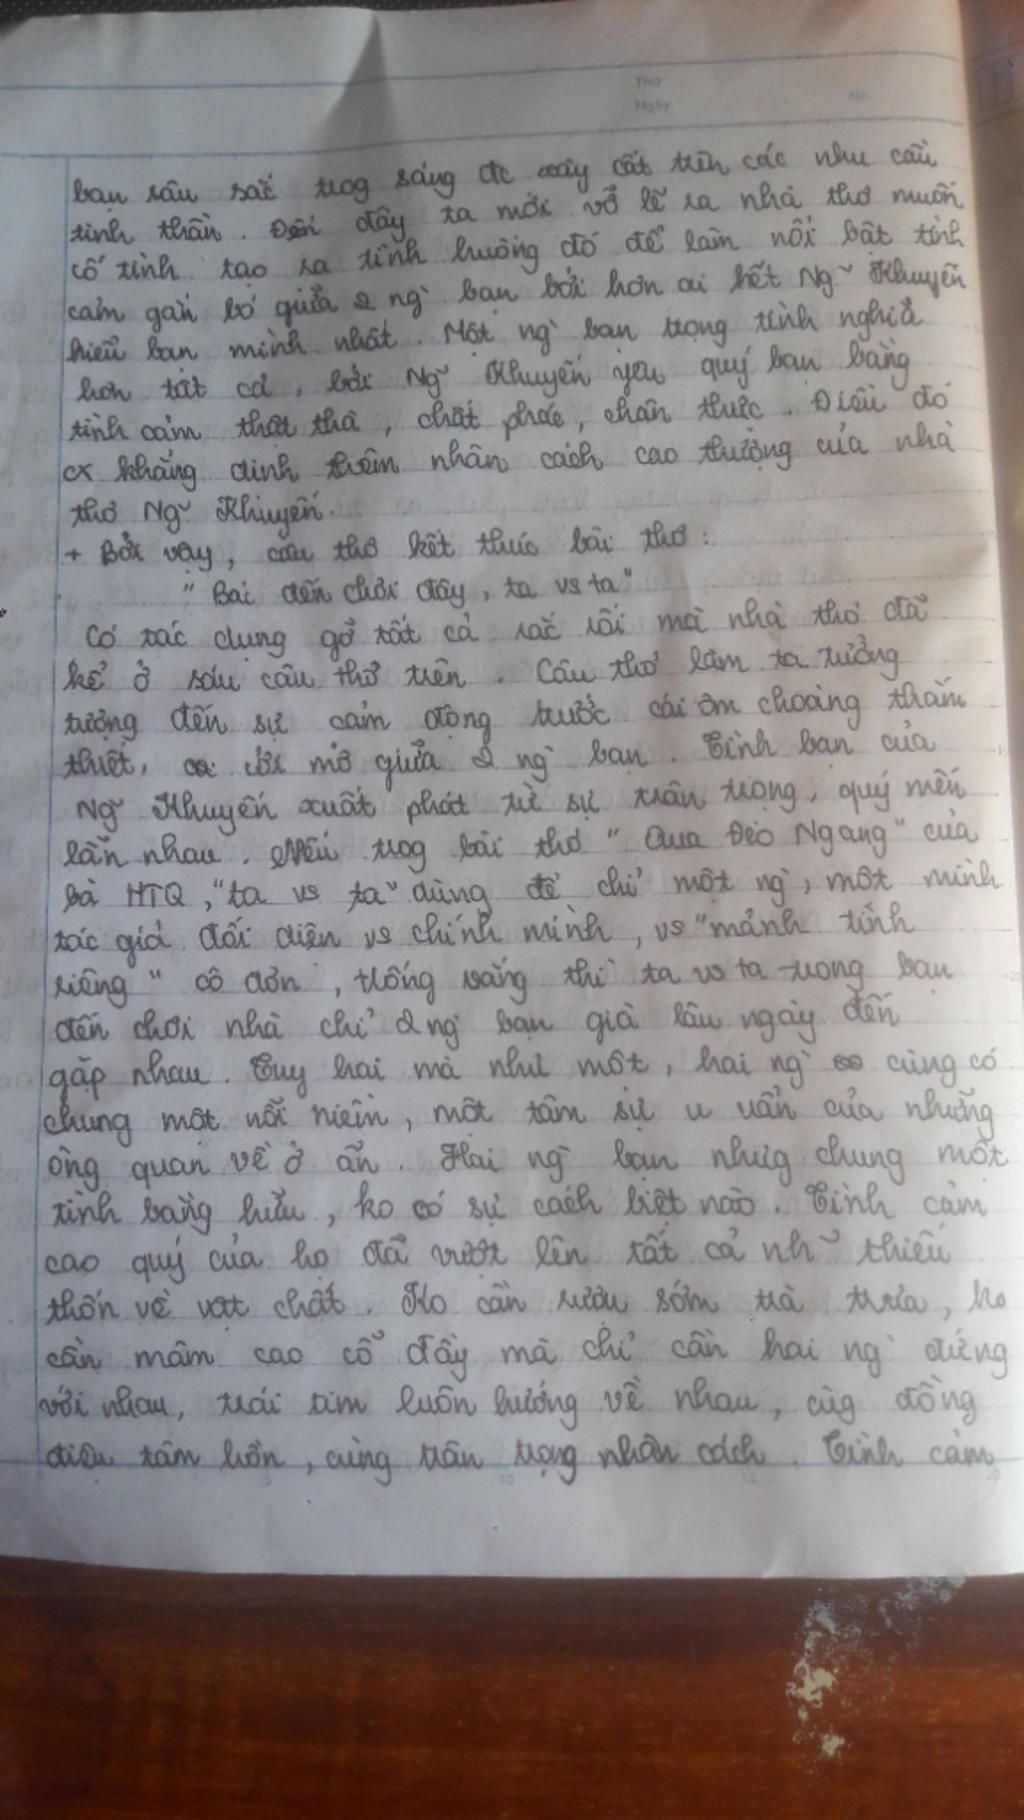 Thứ
Ngày
No.
bạn sâu sắc trog sáng đc xây cất trên các nhu cầu
tinh thần. Đến đây ta mới vỡ lẽ ra nhà thơ muốn
cố tình tạo ra tình huống đó để làm nổi bật tình
cảm gắn bó giữa 2 ng` bạn bởi hơn ai hết Ng~ Khuyến
hiểu bạn mình nhất. Một ng` bạn trọng tình nghĩa
hơn tất cả, bởi Ng~ Khuyến yêu quý bạn bằng
tình cảm thật thà, chất phác, chân thực. Điều đó
cx khẳng định thêm nhân cách cao thượng của nhà
thơ Ng~ Khuyến.
+ Bởi vậy, câu thơ kết thúc bài thơ:
" Bác đến chơi đây, ta vs ta"
Có tác dụng gỡ tất cả rắc rối mà nhà thơ đã
kể ở sáu câu thơ trên. Câu thơ làm ta tưởng
tượng đến sự cảm động trước cái ôm choàng thắm
thiết, cởi mở giữa 2 ng` bạn. Tình bạn của
Ng~ Khuyến xuất phát từ sự trân trọng, quý mến
lẫn nhau. Nếu trog bài thơ " Qua Đèo Ngang" của
bà HTQ, "ta vs ta" dùng để chỉ một ng`, một mình
tác giả đối diện vs chính mình, vs "mảnh tình
riêng" cô đơn, trống vắng thì ta vs ta trong bạn
đến chơi nhà chỉ 2 ng` bạn già lâu ngày đến
gặp nhau. Tuy hai mà như một, hai ng` cùng có
chung một nỗi niềm, một tâm sự u uẩn của những
ông quan về ở ẩn. Hai ng` bạn nhưg chung một
tình bằng hữu, ko có sự cách biệt nào. Tình cảm
cao quý của họ đã vượt lên tất cả nh~ thiếu
thốn về vật chất. Ko cần rượu sớm trà trưa, ko
cần mâm cao cỗ đầy mà chỉ cần hai ng` đứng
với nhau, trái tim luôn hướng về nhau, cùg đồng
điệu tâm hồn, cùng trân trọng nhân cách. Tình cảm